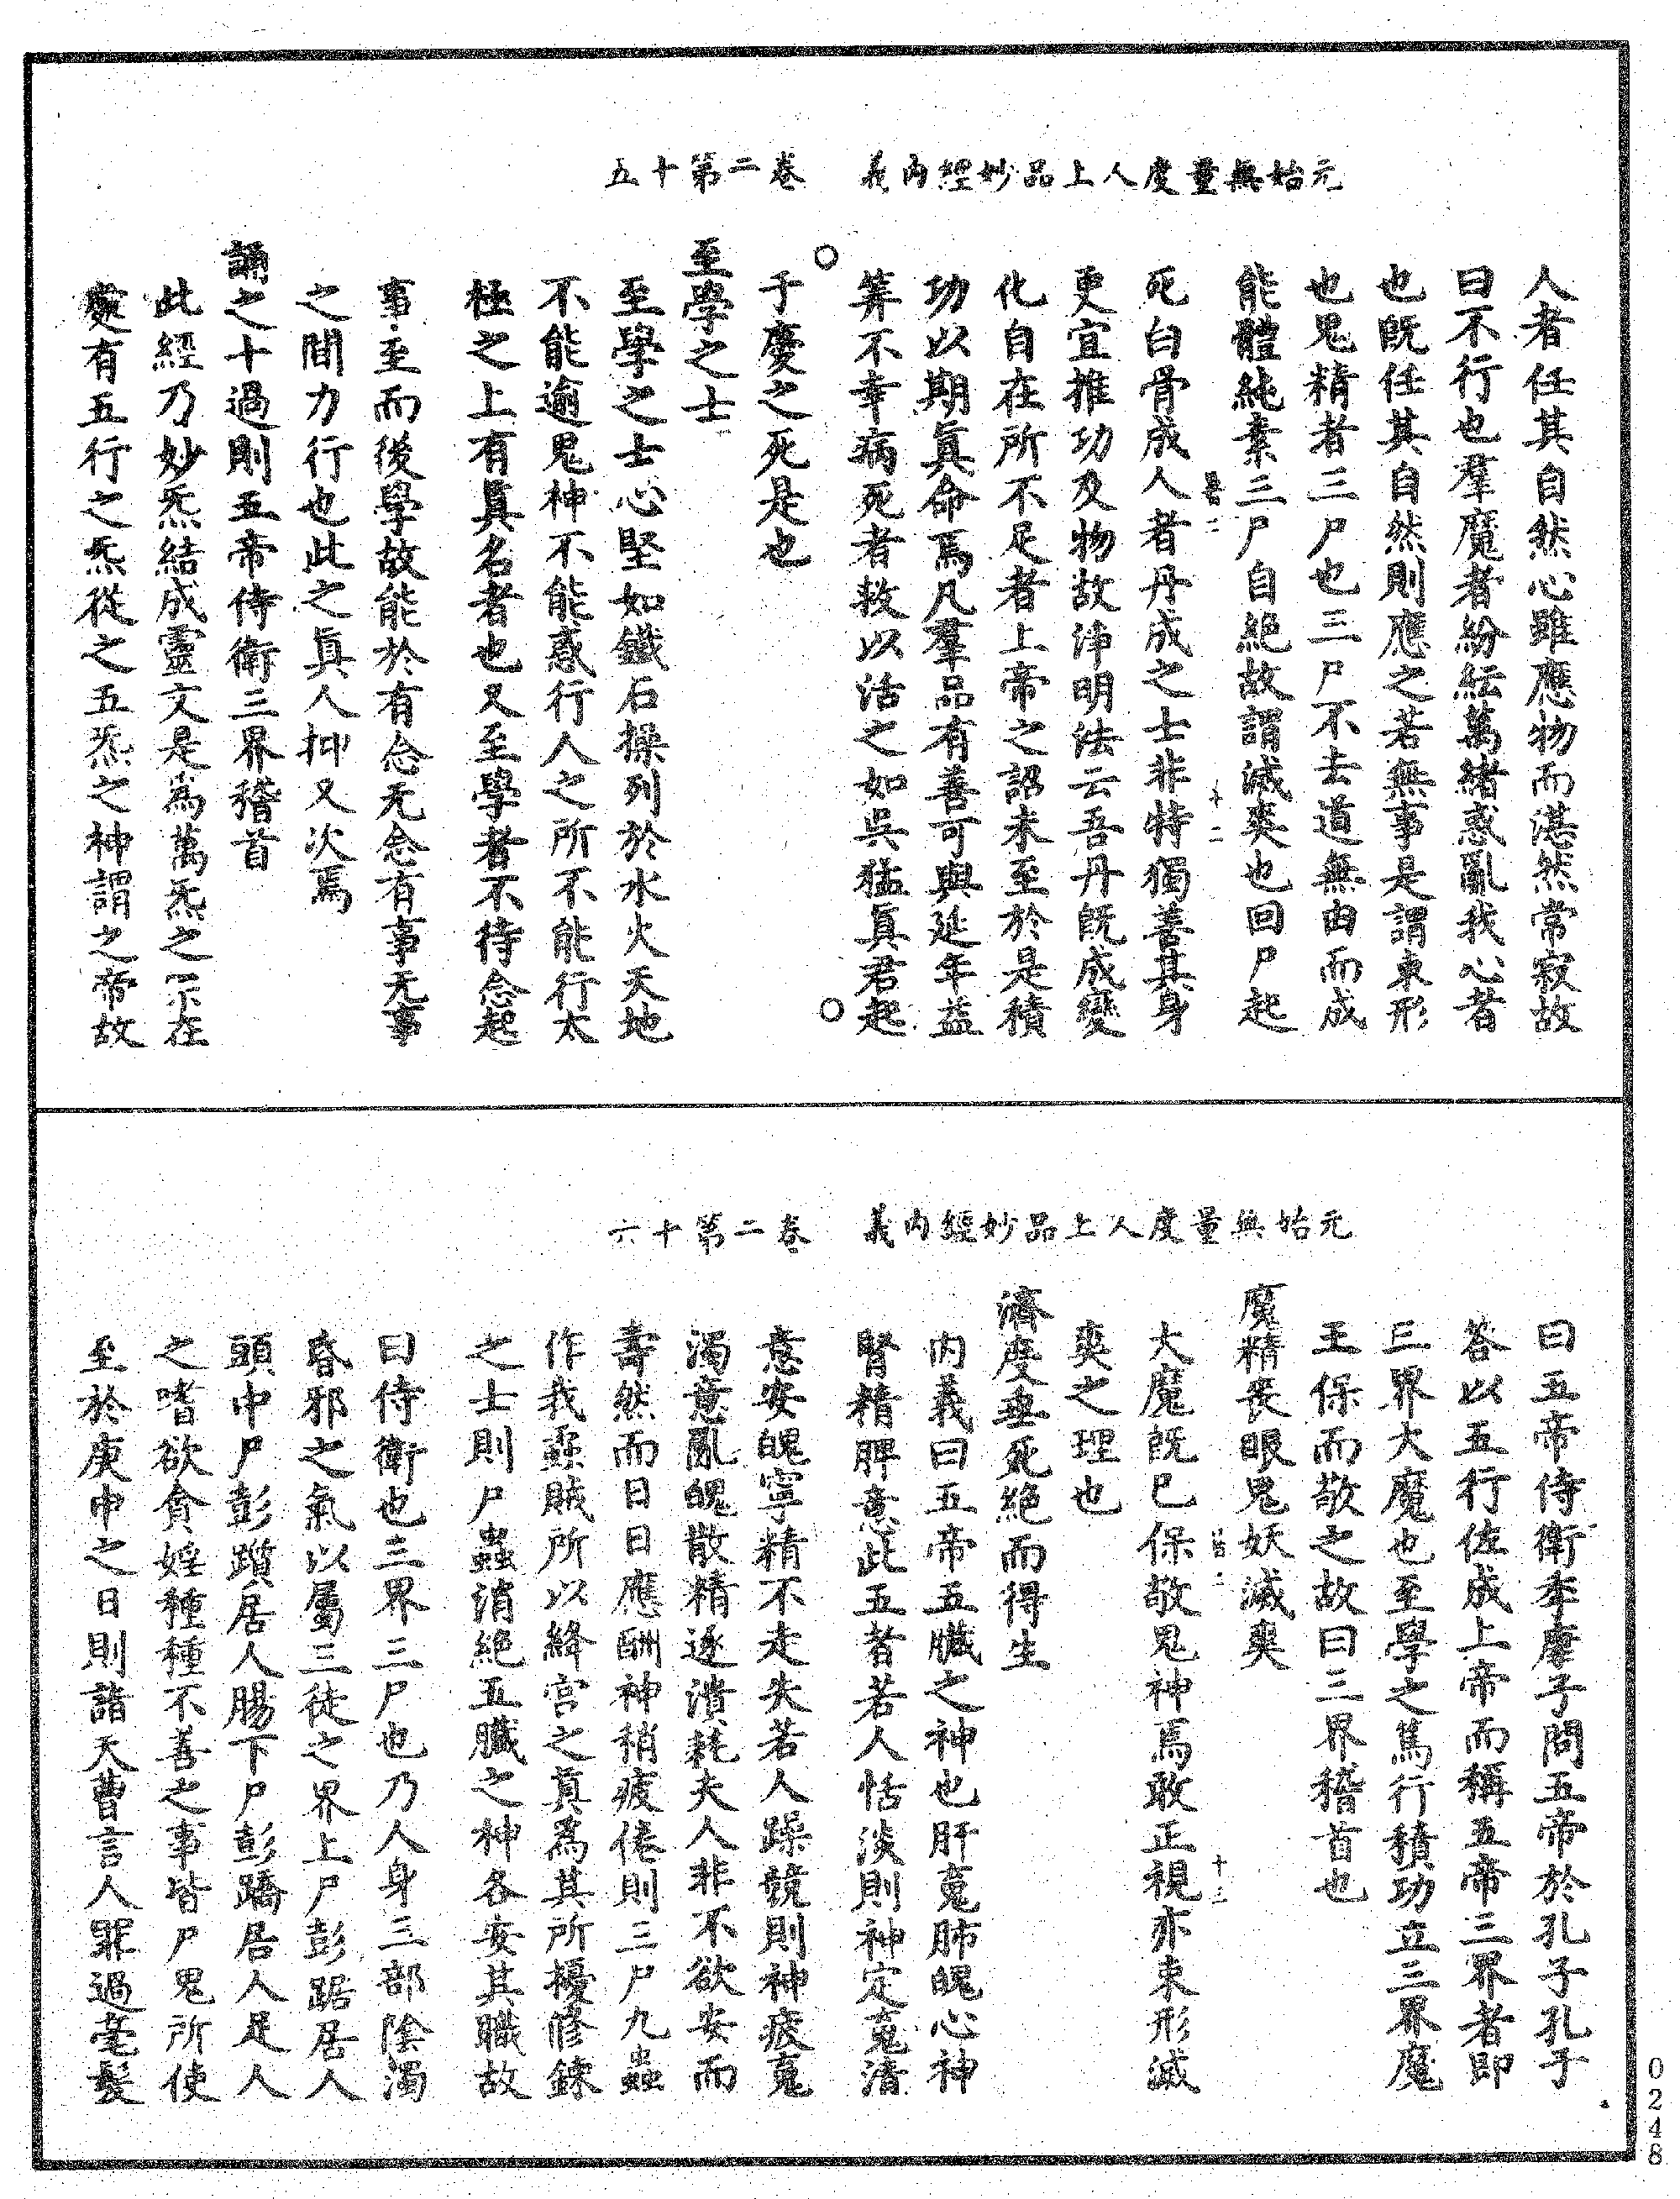 元始無量度人上品妙經內義　卷二第十五
人者任其自然心雖應物而湛然常寂故
曰不行也羣魔者紛紜萬緒惑亂我心者
也旣任其自然則應之若無事是謂束形
也鬼精者三尸也三尸不去道無由而成
能體純素三尸自絕故謂滅爽也回尸起
死白骨成人者丹成之士非特獨善其身
更宜推功及物故淨明法云吾丹旣成變
化自在所不足者上帝之詔未至於是積
功以期眞命焉凡羣品有善可與延年益
筭不幸病死者救以活之如吳猛眞君起
于慶之死是也
至學之士
至學之士心堅如鐵石操列於水火天地
不能逾鬼神不能惑行人之所不能行太
極之上有眞名者也又至學者不待念起
事至而後學故能於有念无念有事无事
之間力行也此之眞人抑又次焉
誦之十過則五帝侍衛三界稽首
此經乃妙炁結成靈文是爲萬炁之宗在
處有五行之炁從之五炁之神謂之帝故
元始無量度人上品妙經內義　卷二第十六
曰五帝侍衛季康子問五帝於孔子孔子
答以五行佐成上帝而稱五帝三界者即
三界大魔也至學之篤行積功立三界魔
王保而敬之故曰三界稽首也
魔精喪眼鬼妖滅爽
大魔旣已保敬鬼神焉敢正視亦束形滅
爽之理也
濟度垂死絕而得生
內義曰五帝五臟之神也肝䰟肺魄心神
腎精脾意此五者若人恬淡則神定䰟清
意安魄寧精不走失若人躁競則神疲䰟
濁意亂魄散精逐潰耗夫人非不欲安而
壽然而日日應酬神稍疲倦則三尸九蟲
作我蟊賊所以絳宮之眞爲其所擾修鍊
之士則尸蟲消絕五臟之神各安其職故
曰侍衛也三界三尸也乃人身三部陰濁
昏邪之氣以屬三徒之界上尸彭踞居人
頭中尸彭躓居人腸下尸彭蹻居人足人
之嗜欲貪婬種種不善之事皆尸鬼所使
至於庚申之日則詣天曹言人罪過毫髮
0248